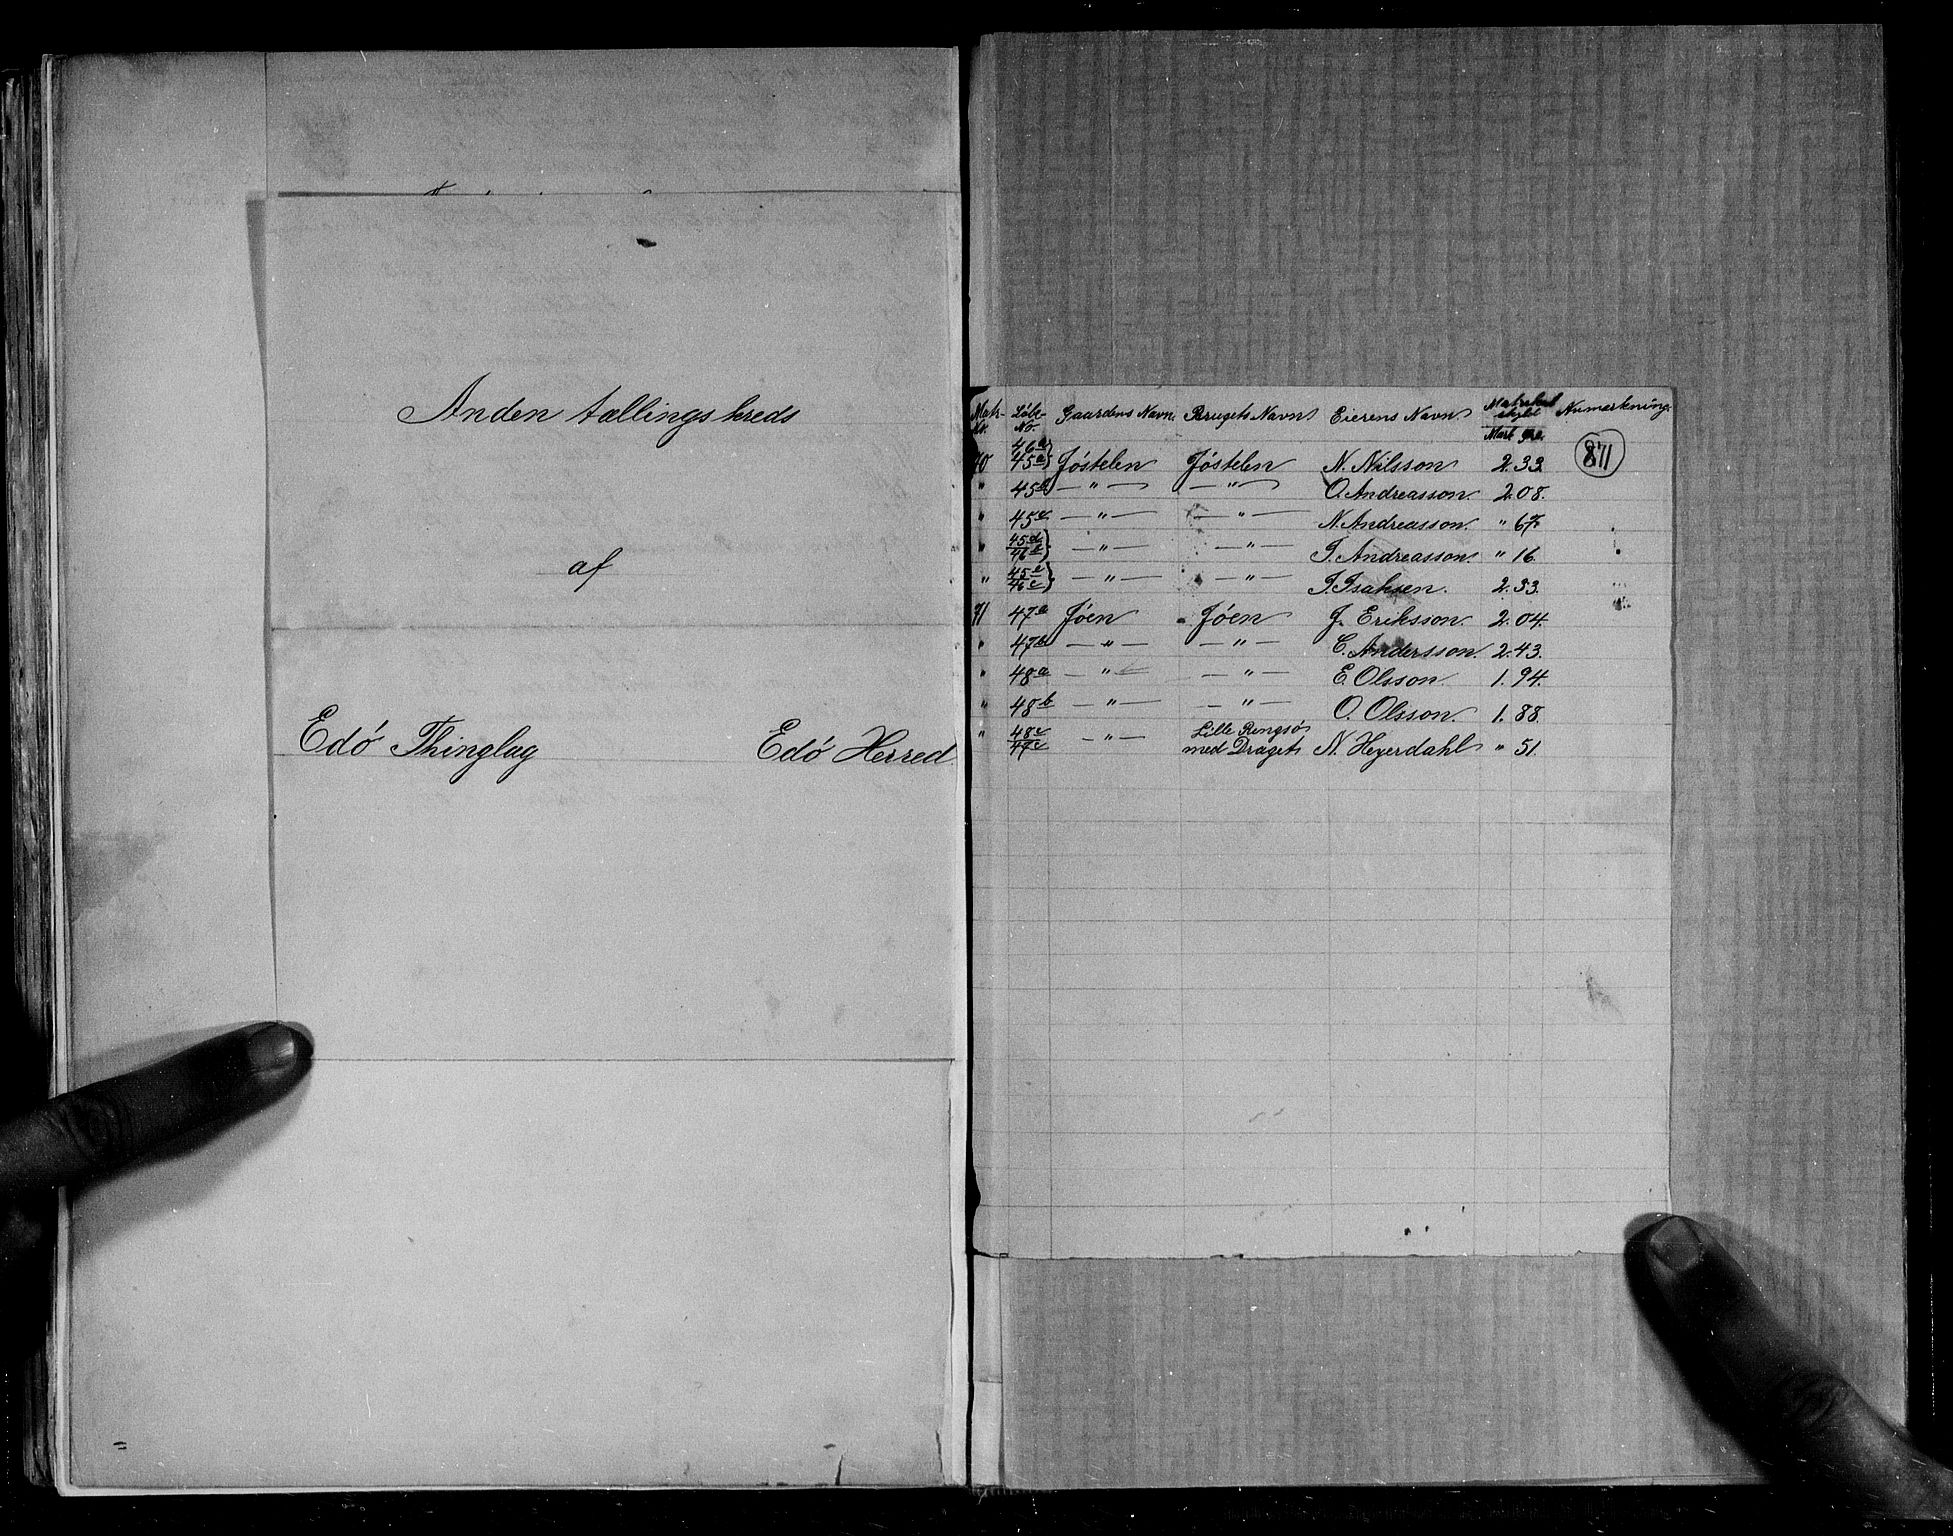 Anden tællings kreds
af
Edö Thinglag Edö Herred
Matr. No. Löb. No. Gaardens Navn. Brugets Navn Eierens Navn Matrikul skyld Mark Öre. Anmerkning.
871
46a 45a } Jöstelen Jöstelen N. Nilsson 2.33
" 45b — " — — " — O. Andreasson 2.08.
" 45c — " — — " — N. Andreasson. " 67.
" 45d — " — — " — I. Andreasson. " 16.
" 45e 46c } — " — — " — I. Isaksen. 2.33.
71 47a Jöen Jöen J. Eriksson. 2.04.
" 47b — " — — " — C. Andersson. 2.43.
" 48a — " — — " — E. Olsson. 1.94.
" 48b — " — — " — O. Olsson. 1.88.
" 48c 47c — " — Lille Rengsö med Draget N. Heyerdahl " 51.